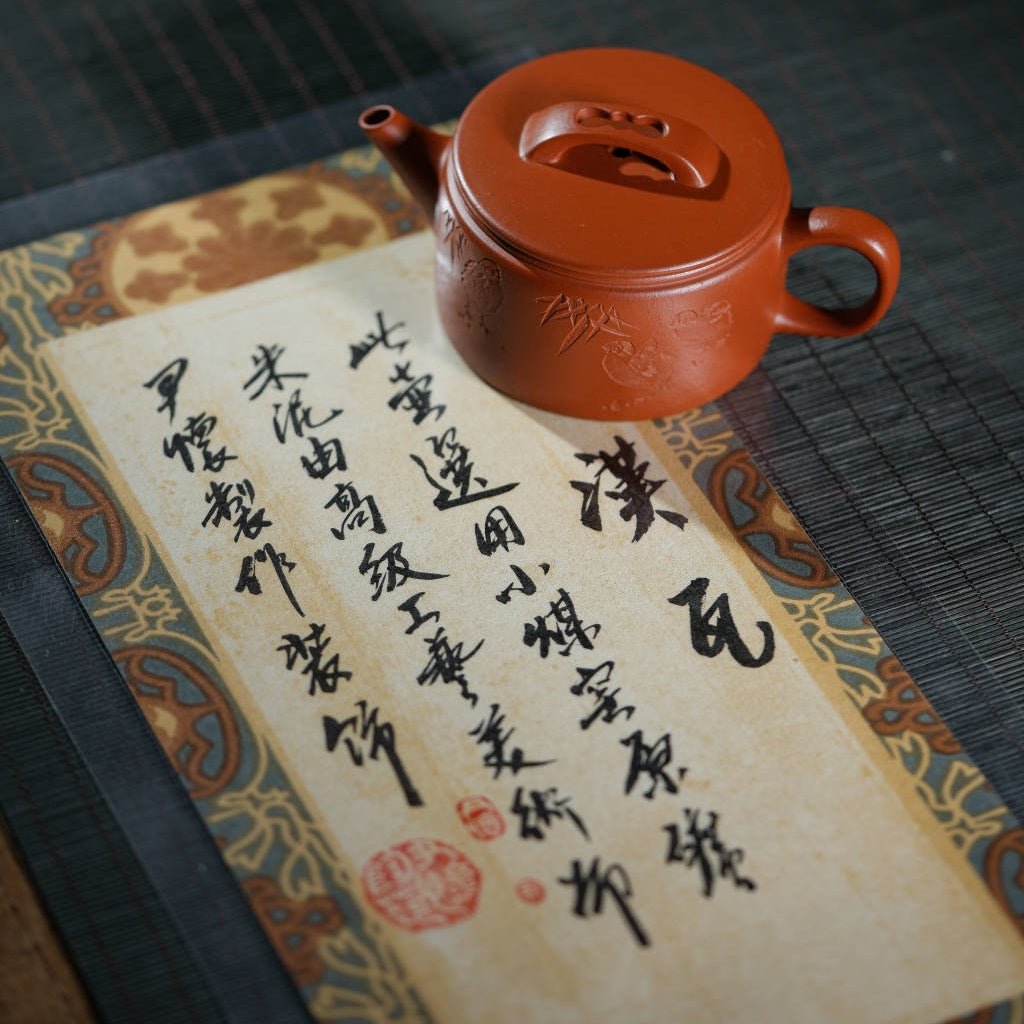 漢瓦
此壺選用小煤窑原礦
朱泥由高級工藝美術师
尹懷製作裝飾